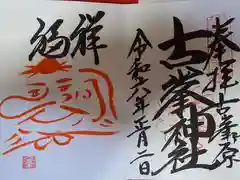 奉拝 古峯原
古峯神社
令和六年正月二日
祥福